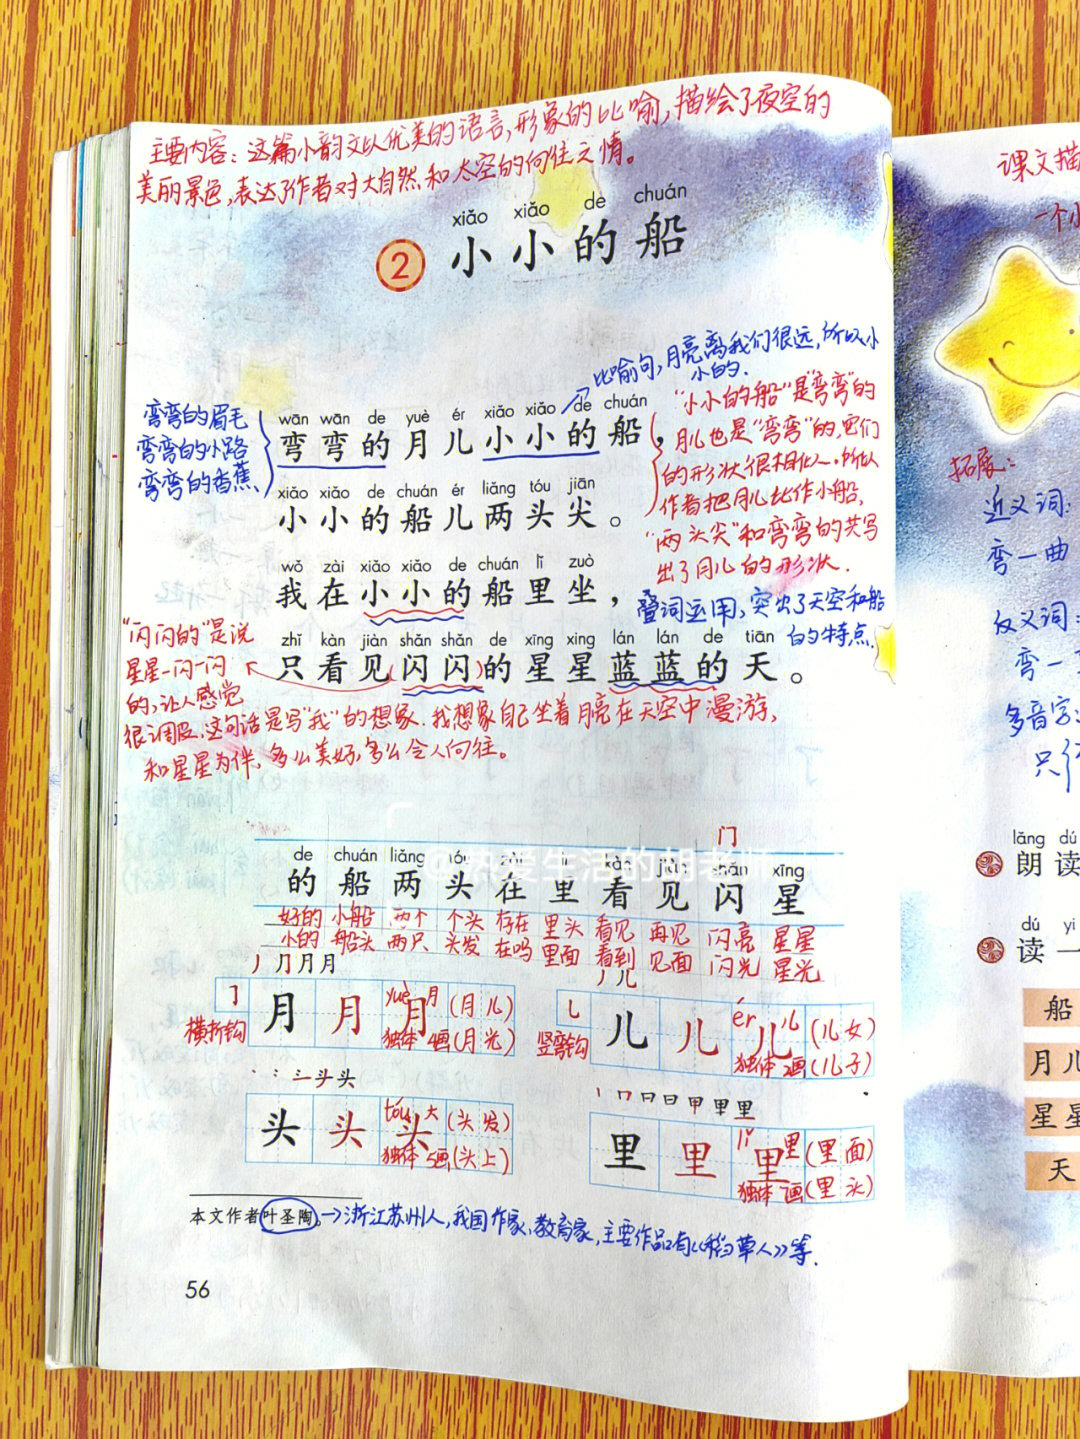 主要内容：这篇小韵文以优美的语言，形象的比喻，描绘了夜空的
美丽景色，表达了作者对大自然和太空的向往之情。
xiǎo xiǎo de chuán
2 小小的船
比喻句，月亮离我们很远，所以小
小的.
弯弯的眉毛
弯弯的小路
弯弯的香蕉
wān wān de yuè ér xiǎo xiǎo de chuán
弯弯的月儿小小的船，
xiǎo xiǎo de chuán ér liǎng tóu jiān
小小的船儿两头尖。
wǒ zài xiǎo xiǎo de chuán lǐ zuò
我在小小的船里坐，
zhǐ kàn jiàn shǎn shǎn de xīng xing lán lán de tiān
只看见闪闪的星星蓝蓝的天。
"小小的船"是"弯弯"的
月儿也是"弯弯"的，它们
的形状很相似，所以
作者把月儿比作小船，
"两头尖"和弯弯的共写
出了月儿的形状.
叠词运用，突出了天空和船
的特点.
"闪闪的"是说
星星一闪一闪
的，让人感觉
很调皮，这句话是写"我"的想象.我想象自己坐着月亮在天空中漫游，
和星星为伴，多么美好，多么令人向往。
门
de chuán liǎng tóu zài lǐ kàn jiàn shǎn xīng
的船两头在里看见闪星
好的 小船 两个 个头 存在 里头 看见 再见 闪亮 星星
小的 船头 两只 头发 在吗 里面 看到 见面 闪光 星光
丿 ⺆ 月 月
㇆ 月 月 月 yuè 月 (月儿)
横折钩 独体 4画 (月光)
丿 儿
乚 儿 儿 儿 ér 儿 (儿女)
竖弯钩 独体 2画 (儿子)
头 头
头 头 头 tóu 大 (头发)
独体 5画 (头上)
丨 口 日 曰 甲 里 里
里 里 里 lǐ 里 (里面)
独体 7画 (里头)
本文作者叶圣陶。→浙江苏州人，我国作家、教育家，主要作品有《稻草人》等.
56
@热爱生活的胡老师
课文描
一个小
拓展：
近义词：
弯一曲
反义词：
弯一
多音字：
只
lǎng dú
朗读
dú yi
读一
船
月儿
星星
天